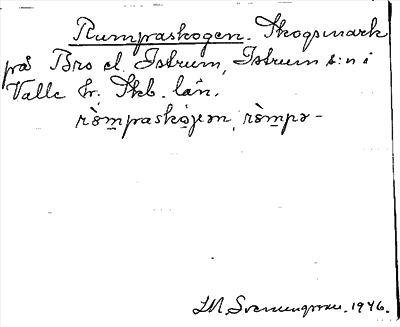 Rumpaskogen. Skogsmark
på Bro el. Istrum, Istrum s:n i
Valle hr, Skb. län.
rèm̲paskø̀jən, rèm̲pə-
Svenungsson. 1946.